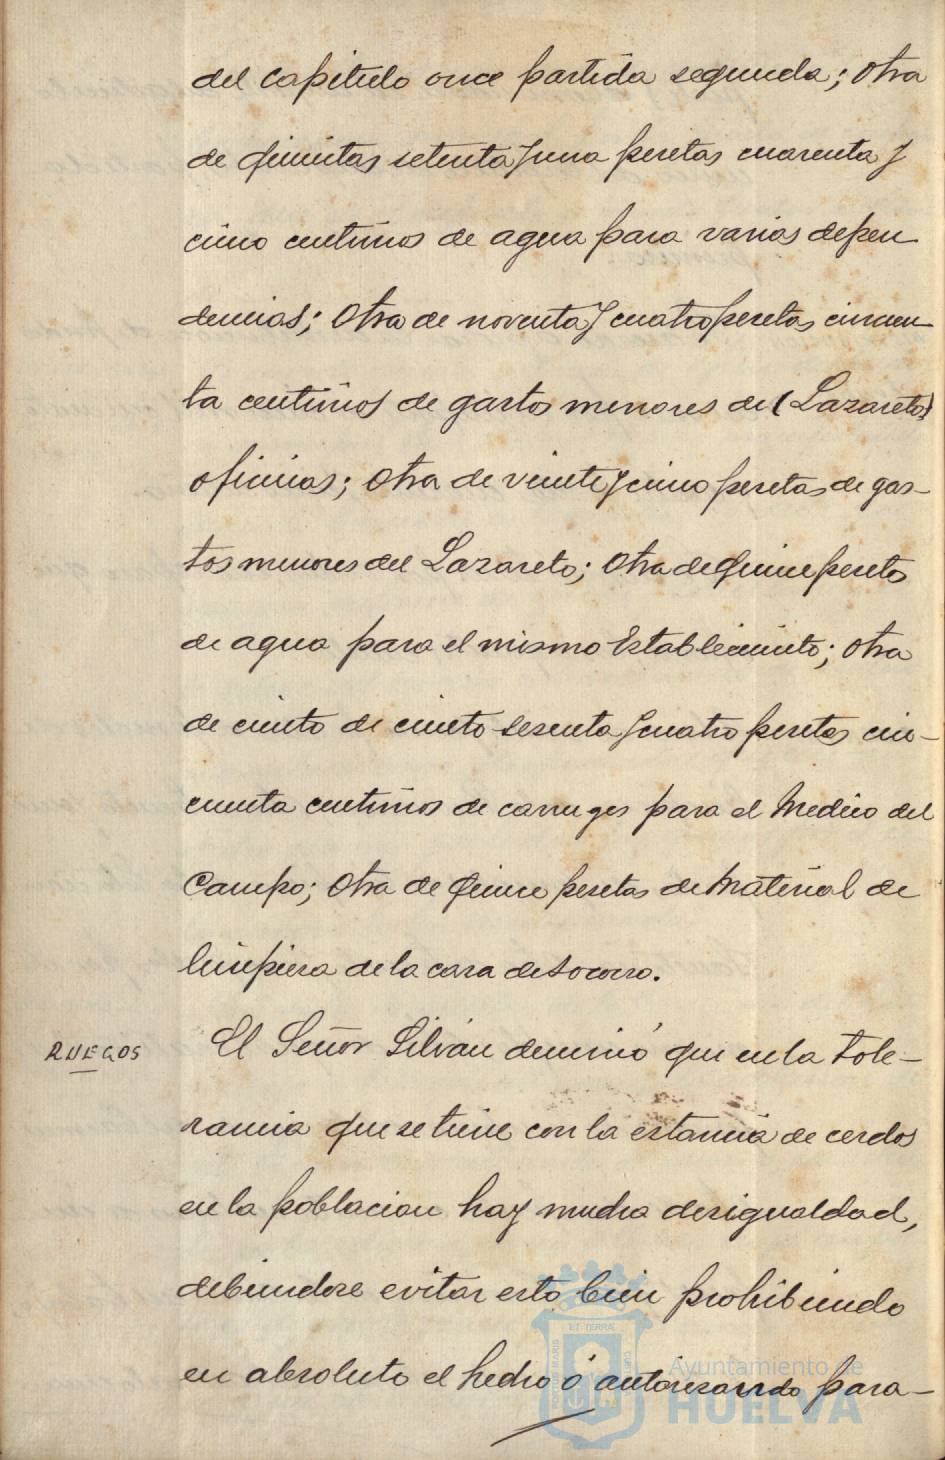 del capitulo once partida segunda; Otra
de quinientas setenta y una pesetas cuarenta y
cinco centimos de agua para varias depen
dencias; Otra de noventa y cuatro pesetas cincuen
ta centimos de gastos menores de (Lazareto)
oficinas; Otra de veinte y cinco pesetas de gas-
tos menores del Lazareto; Otra de quince pesetas
de agua para el mismo Establecimiento; Otra
de ciento de ciento sesenta y cuatro pesetas cin-
cuenta centimos de carruges para el Medico del
Campo; Otra de quince pesetas de Material de
limpieza de la casa de Socorro.
RUEGOS
El Señor Silván denunció que en la tole-
rancia que se tiene con la estancia de cerdos
en la poblacion hay mucha desigualdad,
debiendose evitar esto bien prohibiendo
en absoluto el hecho ó autorizando para-
Ayuntamiento de
HUELVA